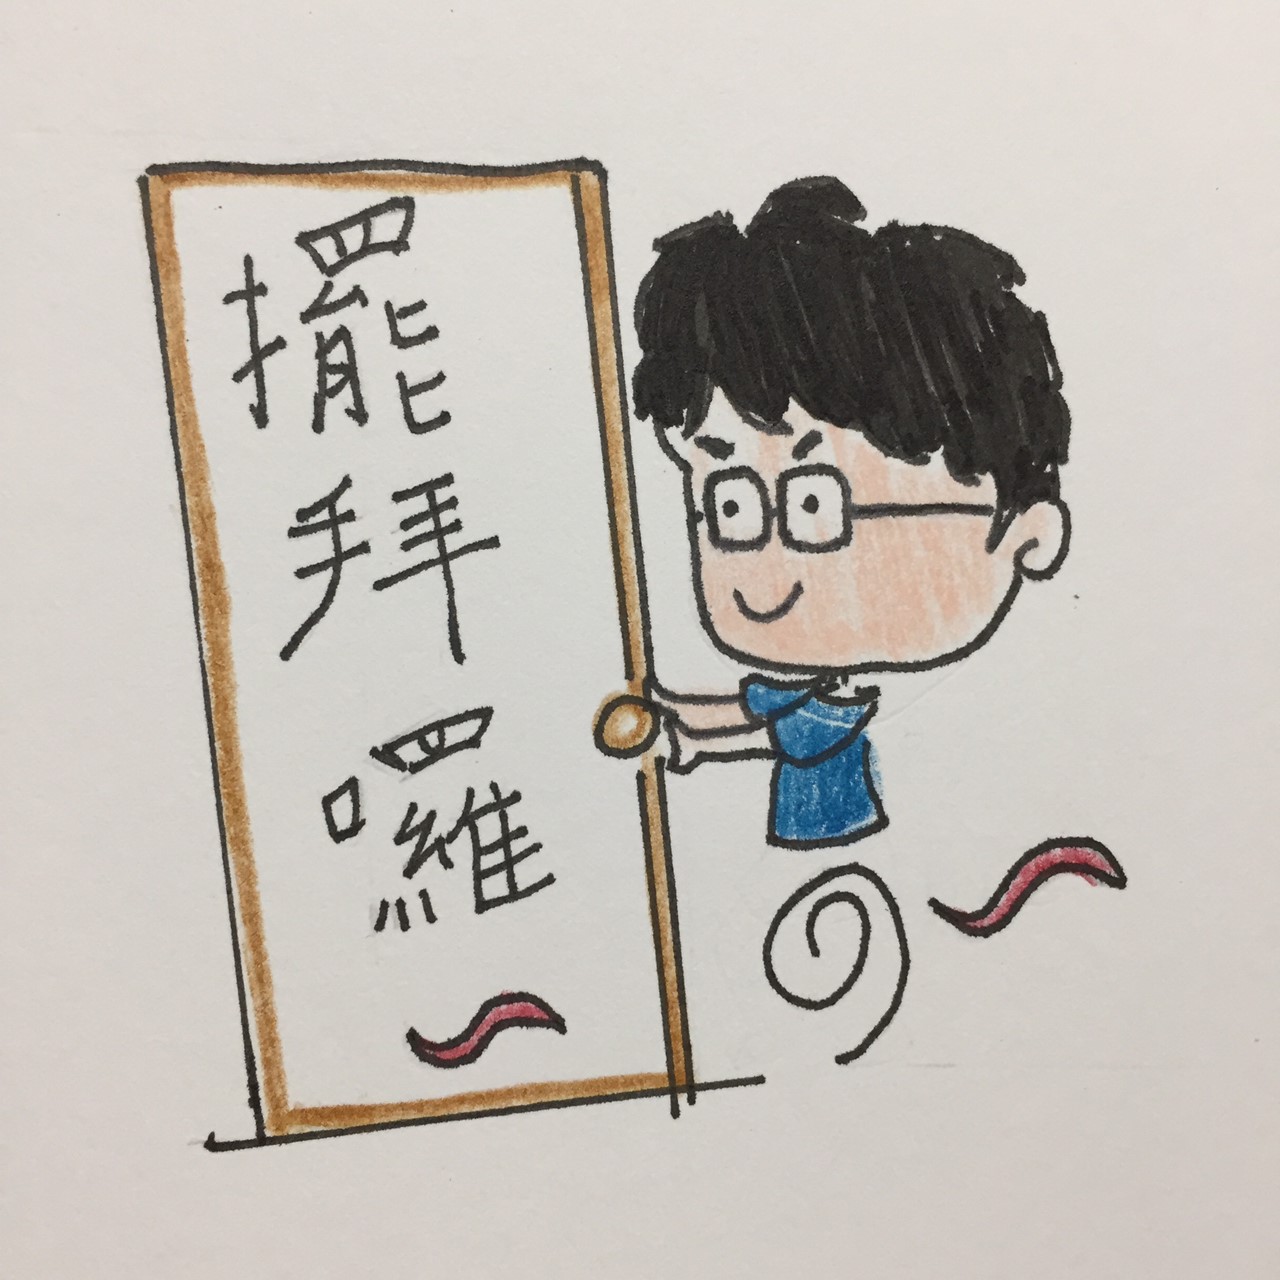 擺拜囉